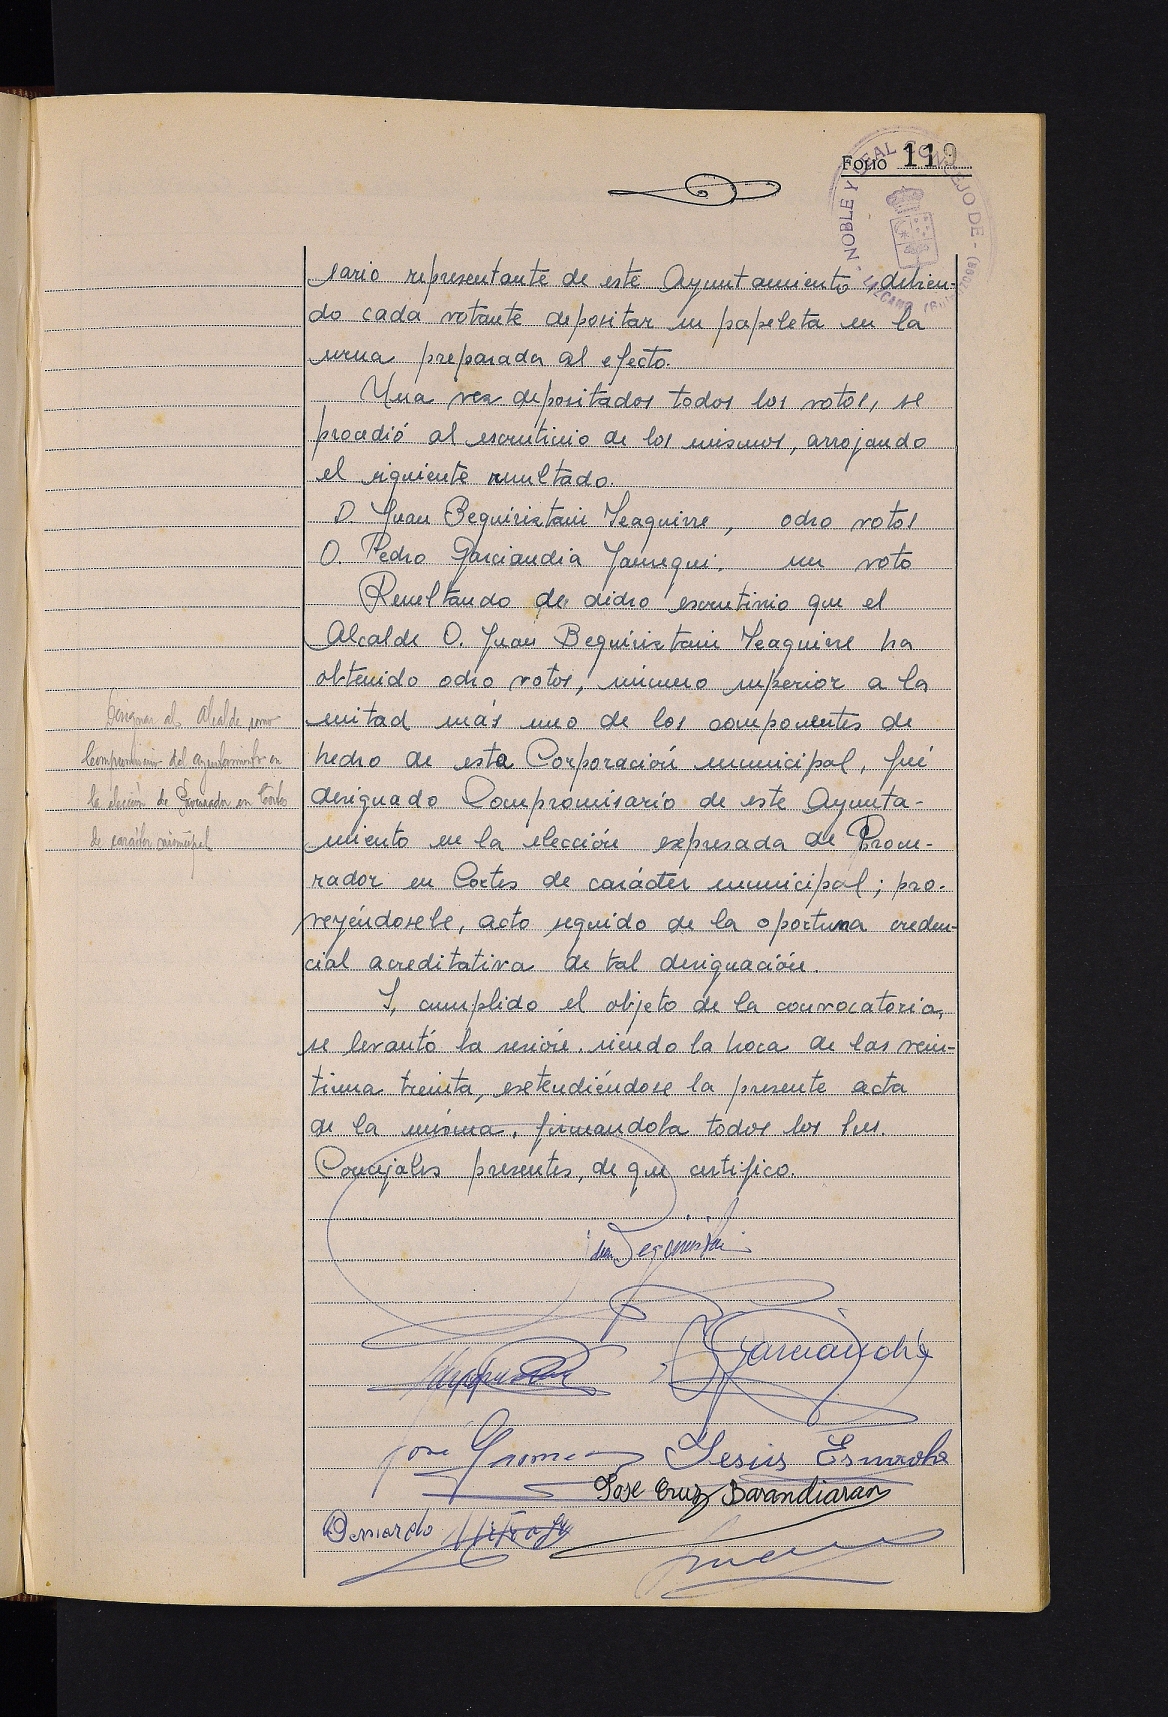 Folio 119
NOBLE Y LEAL CONCEJO DE LAZCANO
sario representante de este Ayuntamiento, debien-
do cada votante depositar su papeleta en la
urna preparada al efecto.
Una vez depositados todos los votos, se
procedió al escrutinio de los mismos, arrojando
el siguiente resultado.
D. Juan Beguiristain Iraguirre, ocho votos
D. Pedro Garciandia Jauregui. un voto
Resultando de dicho escrutinio que el
Alcalde D. Juan Beguiristain Iraguirre ha
obtenido ocho votos, número superior a la
mitad más uno de los componentes de
hecho de esta Corporación municipal, fué
designado Compromisario de este Ayunta-
miento en la elección expresada de Procu-
rador en Cortes de carácter municipal; pro-
veyéndosele, acto seguido de la oportuna creden-
cial acreditativa de tal designación.
Y, cumplido el objeto de la convocatoria,
se levantó la sesión. siendo la hora de las vein-
tiuna treinta, extendiéndose la presente acta
de la misma, firmandola todos los Sres.
Concejales presentes, de que certifico.
Designar al Alcalde como
Compromisario del ayuntamiento en
la elección de Procurador en Cortes
de carácter municipal
Juan Beguiristain
Garciandia
José
Jesús
José Cruz Barandiaran
Bernardo